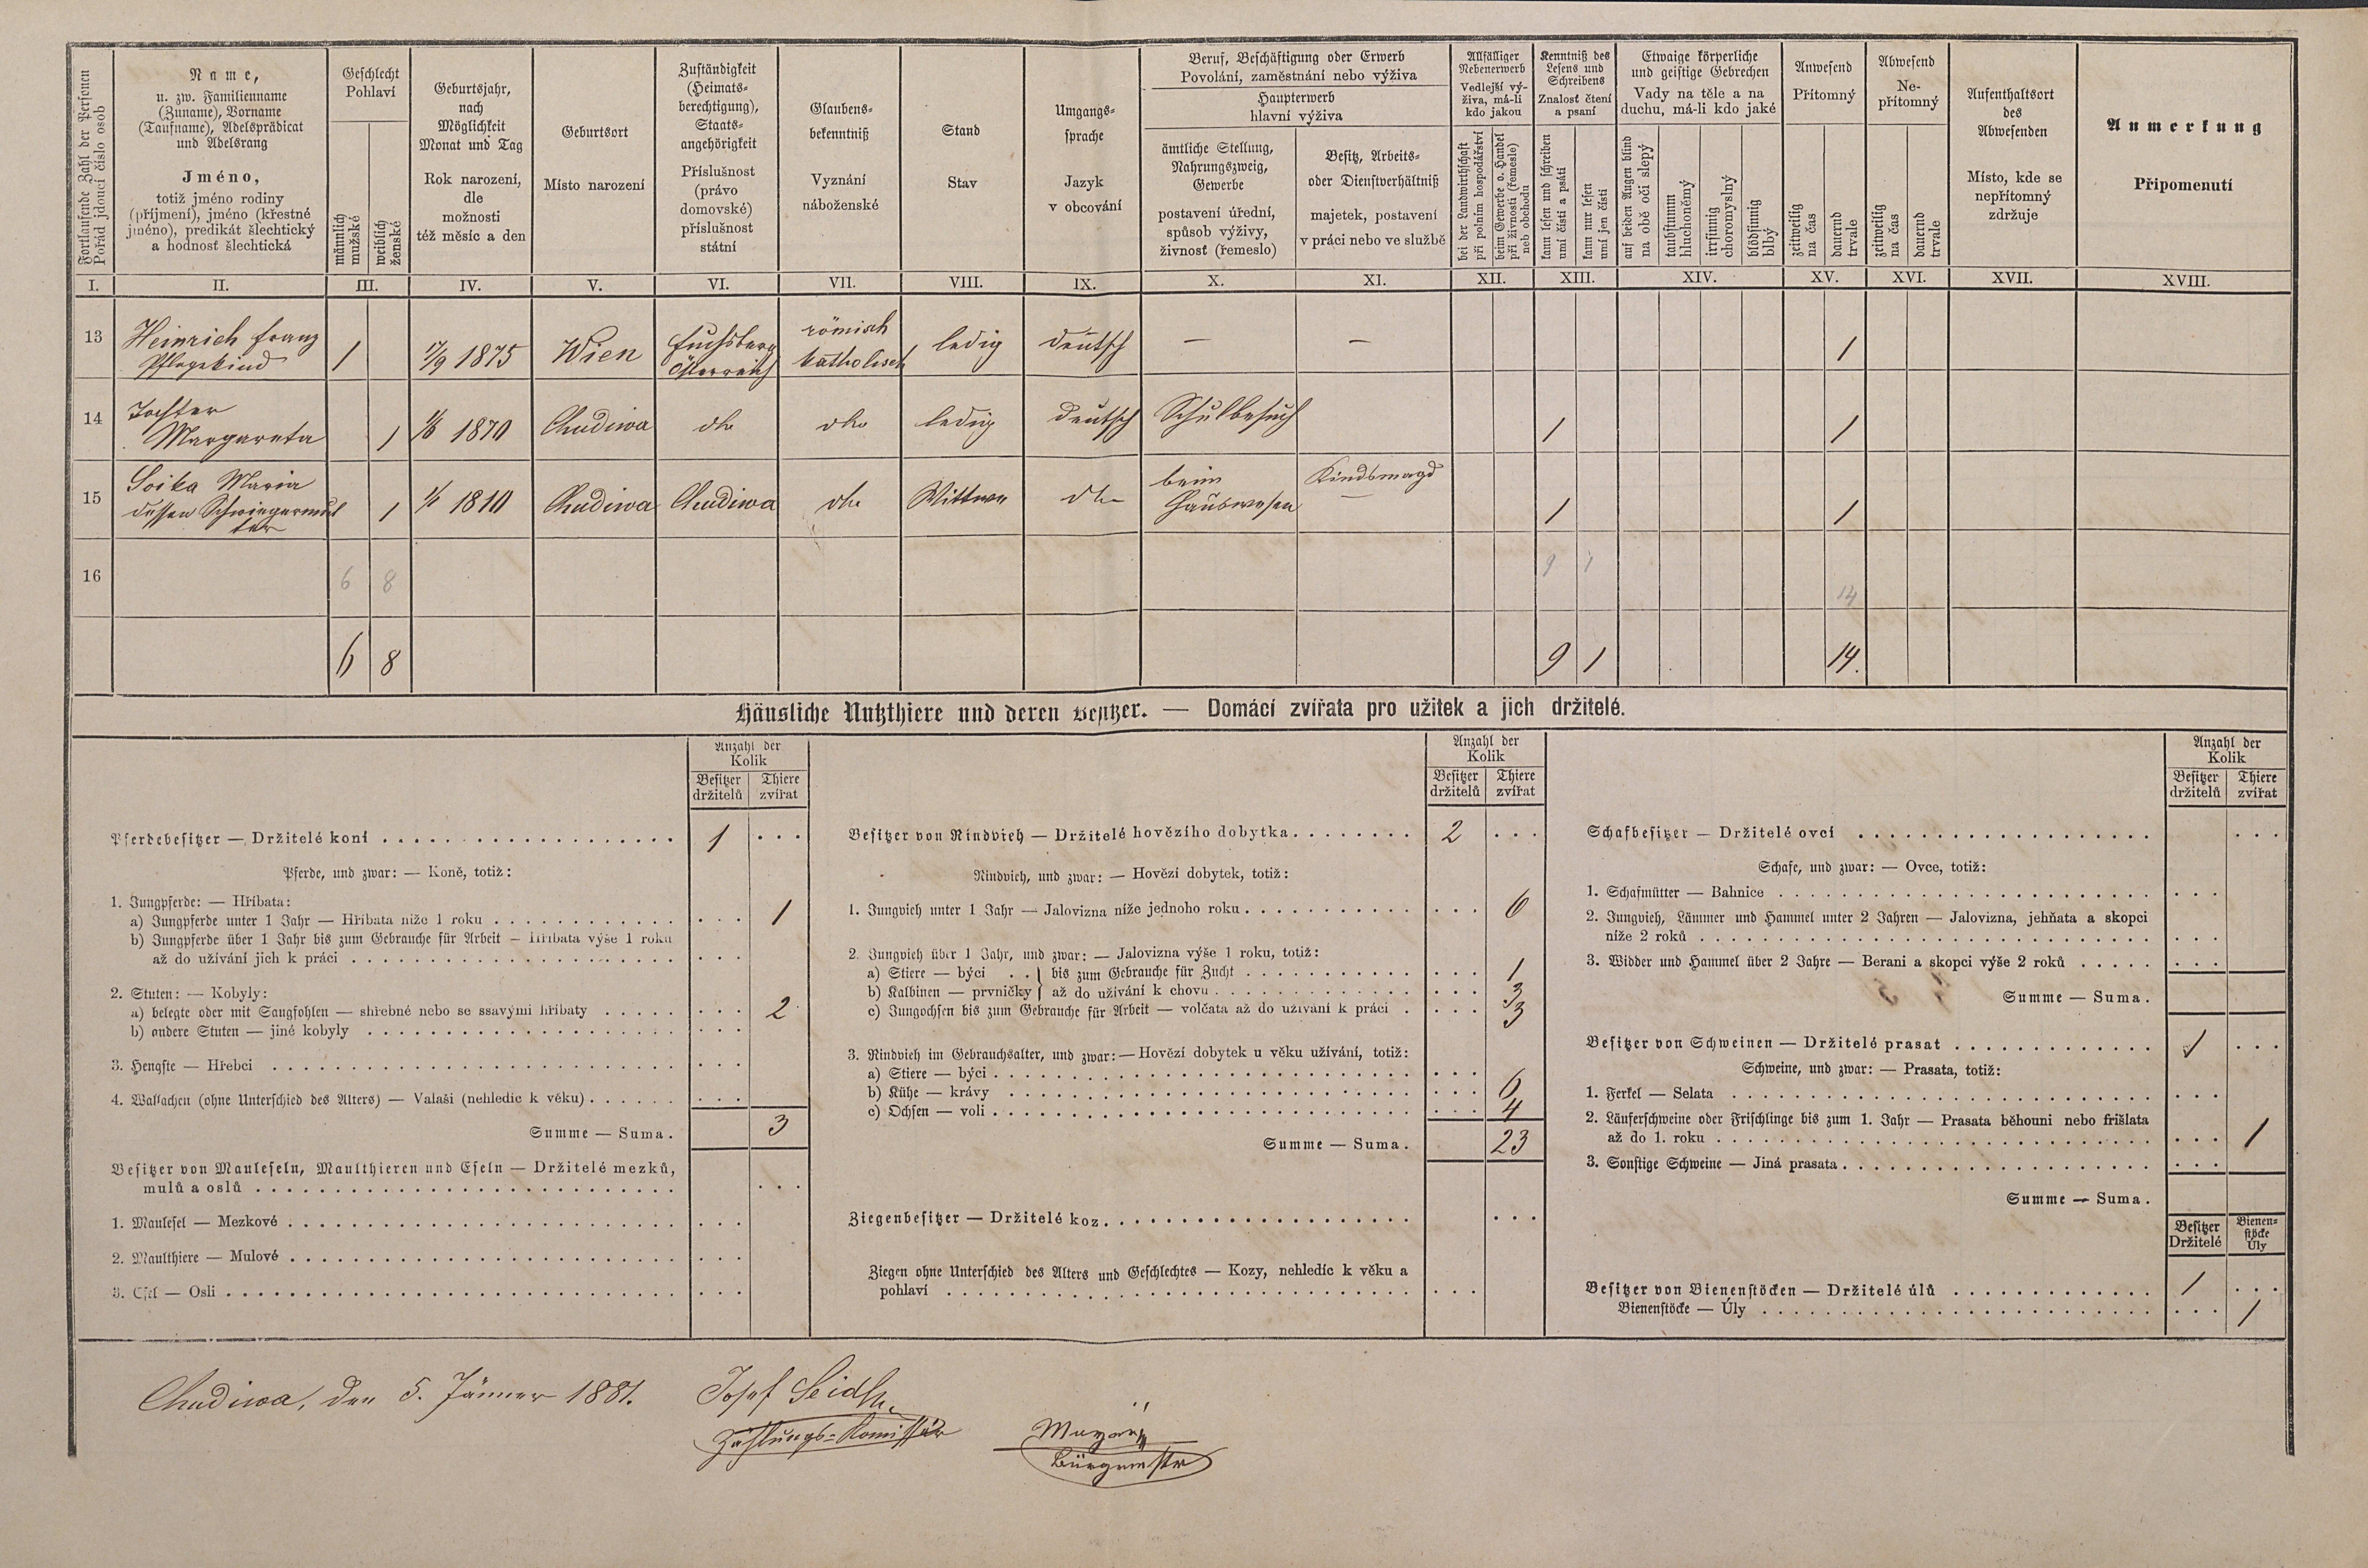 Fortlaufende Zahl der Personen
Pořád jdoucí číslo osob
Name,
u. zw. Familienname
(Zuname), Vorname
(Taufname), Adelsprädicat
und Adelsrang
Jméno,
totiž jméno rodiny
(příjmení), jméno (křestné
jméno), predikát šlechtický
a hodnosť šlechtická
Geschlecht
Pohlaví
männlich
mužské
weiblich
ženské
Geburtsjahr,
nach
Möglichkeit
Monat und Tag
Rok narození,
dle
možnosti
též měsíc a den
Geburtsort
Místo narození
Zuständigkeit
(Heimats-
berechtigung),
Staats-
angehörigkeit
Příslušnost
(právo
domovské)
příslušnost
státní
Glaubens-
bekenntniß
Vyznání
náboženské
Stand
Stav
Umgangs-
sprache
Jazyk
v obcování
Beruf, Beschäftigung oder Erwerb
Povolání, zaměstnání nebo výživa
Haupterwerb
hlavní výživa
ämtliche Stellung,
Nahrungszweig,
Gewerbe
postavení úřední,
spůsob výživy,
živnosť (řemeslo)
Besitz, Arbeits-
oder Dienstverhältniß
majetek, postavení
v práci nebo ve službě
Allfälliger
Nebenerwerb
Vedlejší vý-
živa, má-li
kdo jakou
bei der Landwirthschaft
při polním hospodářství
beim Gewerbe o. Handel
při živnosti (řemesle)
neb obchodu
Kenntniß des
Lesens und
Schreibens
Znalosť čtení
a psaní
kann lesen und schreiben
umí čísti a psáti
kann nur lesen
umí jen čísti
Etwaige körperliche
und geistige Gebrechen
Vady na těle a na
duchu, má-li kdo jaké
auf beiden Augen blind
na obě oči slepý
taubstumm
hluchoněmý
irrsinnig
choromyslný
blödsinnig
blbý
Anwesend
Přítomný
zeitweilig
na čas
dauernd
trvale
Abwesend
Ne-
přítomný
zeitweilig
na čas
dauernd
trvale
Aufenthaltsort
des
Abwesenden
Místo, kde se
nepřítomný
zdržuje
Anmerkung
Připomenutí
I. II. III. IV. V. VI. VII. VIII. IX. X. XI. XII. XIII. XIV. XV. XVI. XVII. XVIII.
13 Heinrich Franz
Pflegekind 1 17/9 1875 Wien Fuchsberg
Österreich römisch
katholisch ledig deutsch — — 1
14 Tochter
Margareta 1 1/6 1870 Chudiwa dto dto ledig deutsch Schulbesuch 1 1
15 Soika Maria
dessen Schwiegermut
ter 1 1810 Chudiwa Chudiwa dto Wittwe dto beim
Hauswesen Kindsmagd
— 1 1
16 6 8 9 1 14
6 8 9 1 14.
Häusliche Nutzthiere und deren Besitzer. — Domácí zvířata pro užitek a jich držitelé.
Anzahl der
Kolik
Besitzer
držitelů
Thiere
zvířat
Pferdebesitzer — Držitelé koní 1
Pferde, und zwar: — Koně, totiž:
1. Jungpferde: — Hříbata:
a) Jungpferde unter 1 Jahr — Hříbata níže 1 roku 1
b) Jungpferde über 1 Jahr bis zum Gebrauche für Arbeit — Hříbata výše 1 roku
až do užívání jich k práci
2. Stuten: — Kobyly:
a) belegte oder mit Saugfohlen — shřebné nebo se ssavými hříbaty 2
b) andere Stuten — jiné kobyly
3. Hengste — Hřebci
4. Wallachen (ohne Unterschied des Alters) — Valaši (nehledíc k věku)
Summe — Suma. 3
Besitzer von Mauleseln, Maulthieren und Eseln — Držitelé mezků,
mulů a oslů
1. Maulesel — Mezkové
2. Maulthiere — Mulové
3. Esel — Osli
Anzahl der
Kolik
Besitzer
držitelů
Thiere
zvířat
Besitzer von Rindvieh — Držitelé hovězího dobytka 2
Rindvieh, und zwar: — Hovězí dobytek, totiž:
1. Jungvieh unter 1 Jahr — Jalovizna níže jednoho roku 6
2. Jungvieh über 1 Jahr, und zwar: — Jalovizna výše 1 roku, totiž:
a) Stiere — býci } bis zum Gebrauche für Zucht 1
b) Kalbinen — prvničky } až do užívání k chovu 3
c) Jungochsen bis zum Gebrauche für Arbeit — volčata až do užívání k práci 3
3. Rindvieh im Gebrauchsalter, und zwar: — Hovězí dobytek u věku užívání, totiž:
a) Stiere — býci
b) Kühe — krávy 6
c) Ochsen — voli 4
Summe — Suma. 23
Ziegenbesitzer — Držitelé koz
Ziegen ohne Unterschied des Alters und Geschlechtes — Kozy, nehledíc k věku a
pohlaví
Anzahl der
Kolik
Besitzer
držitelů
Thiere
zvířat
Schafbesitzer — Držitelé ovcí
Schafe, und zwar: — Ovce, totiž:
1. Schafmütter — Bahnice
2. Jungvieh, Lämmer und Hammel unter 2 Jahren — Jalovizna, jehňata a skopci
níže 2 roků
3. Widder und Hammel über 2 Jahre — Berani a skopci výše 2 roků
Summe — Suma.
Besitzer von Schweinen — Držitelé prasat 1
Schweine, und zwar: — Prasata, totiž:
1. Ferkel — Selata
2. Läuferschweine oder Frischlinge bis zum 1. Jahr — Prasata běhouni nebo frišlata
až do 1. roku 1
3. Sonstige Schweine — Jiná prasata
Summe — Suma.
Besitzer
Držitelé
Bienen-
stöcke
Úly
Besitzer von Bienenstöcken — Držitelé úlů 1
Bienenstöcke — Úly 1
Chudiwa, den 5. Jänner 1881.
Josef Seidl
Zählungs-Komissär
Bürgermstr